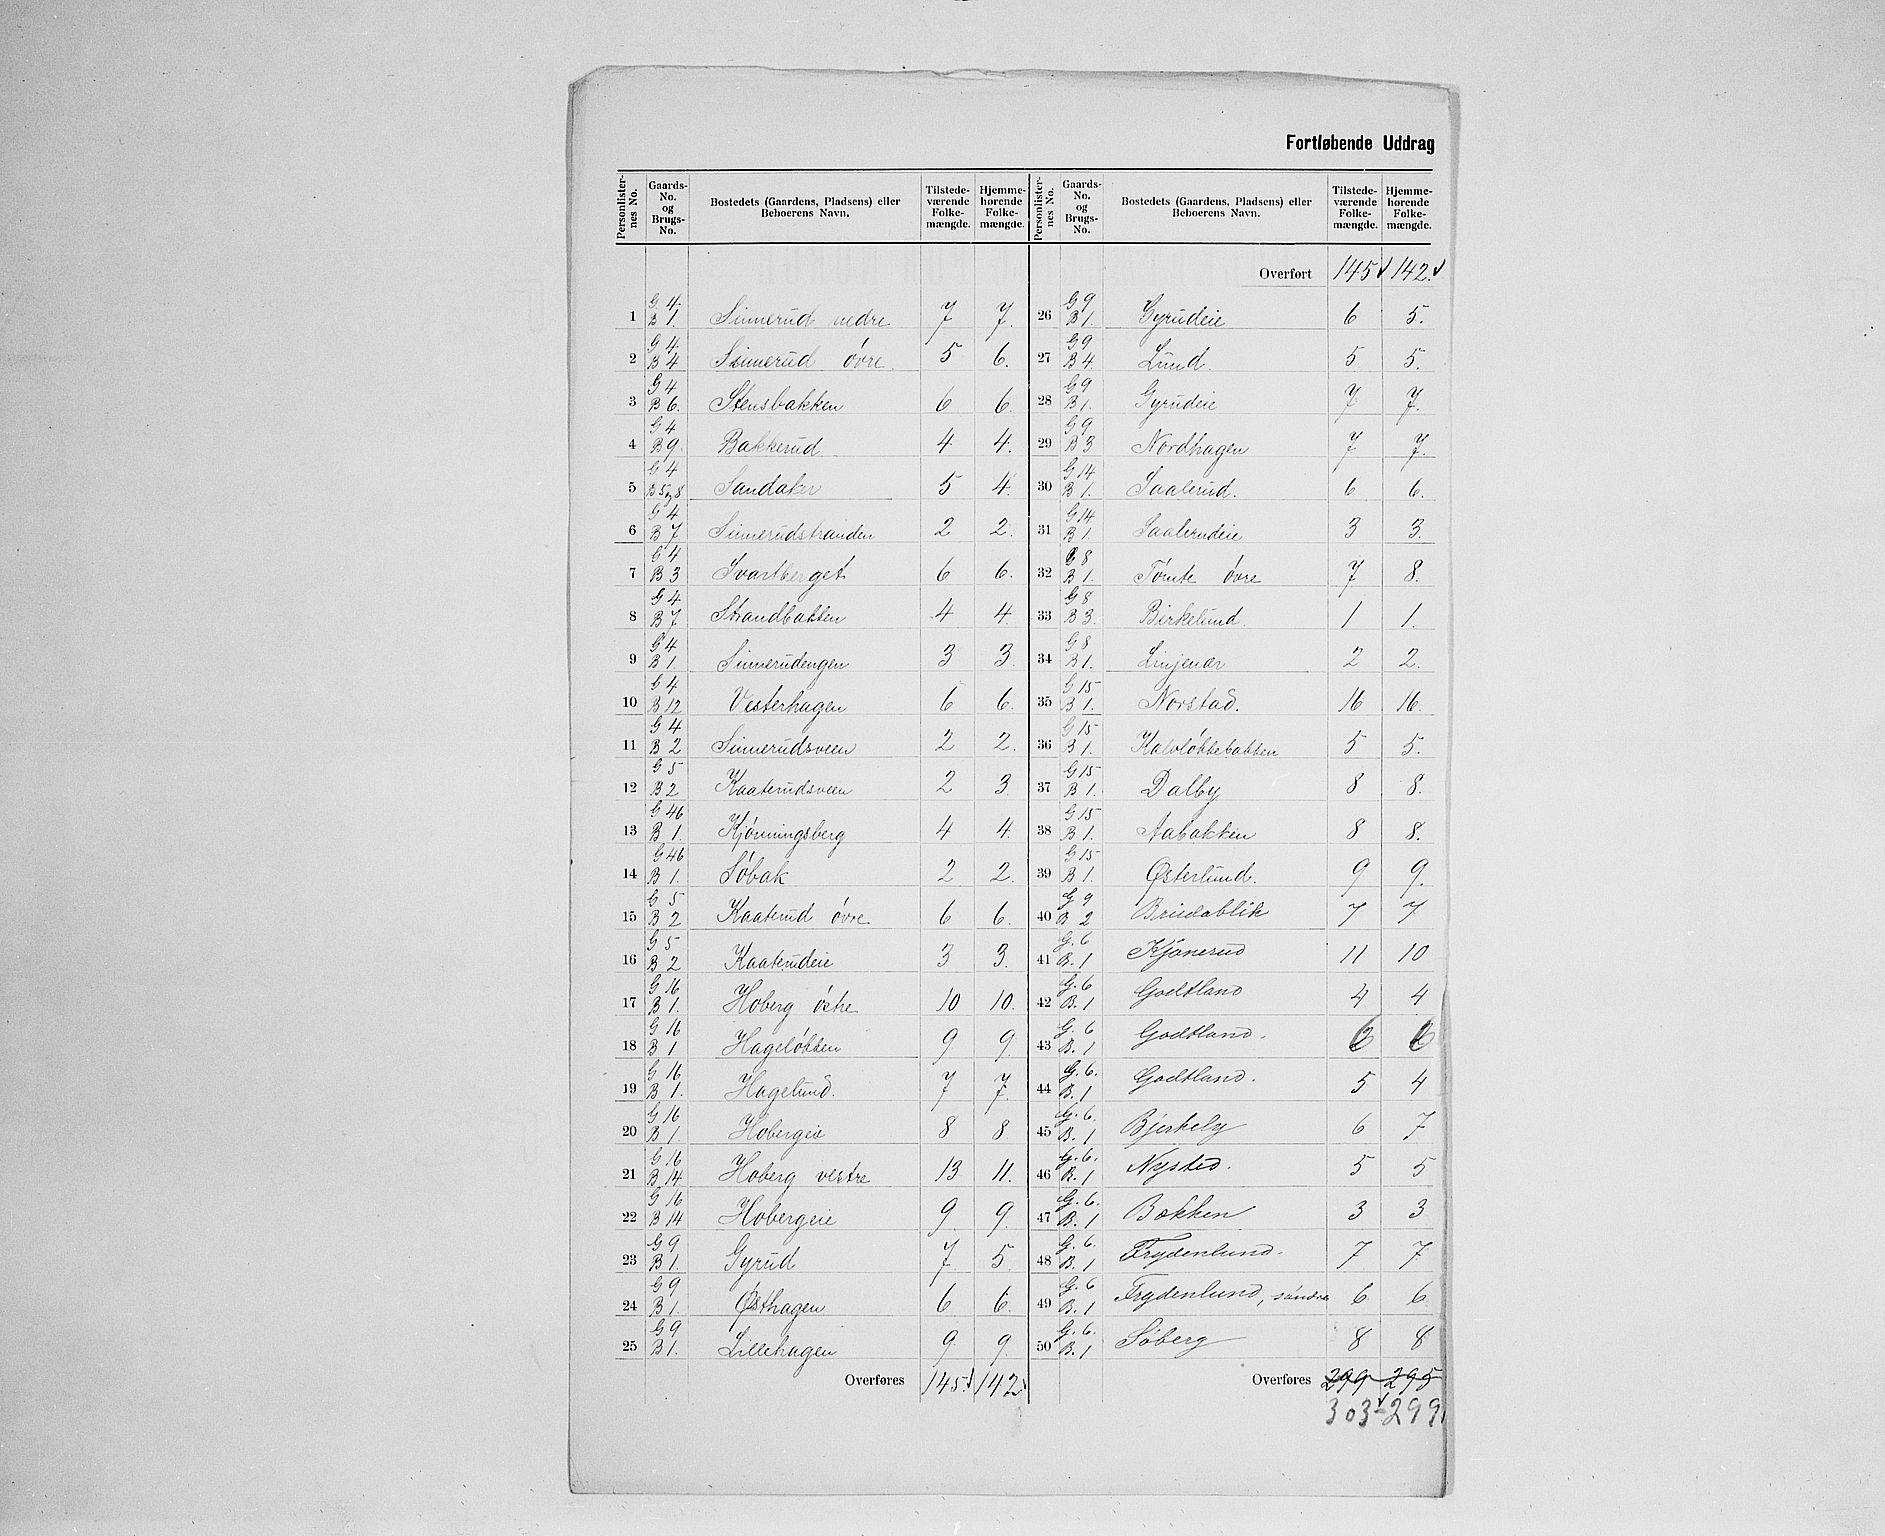 Fortløbende Uddrag
Personlister-nes No. | Gaards-No. og Brugs-No. | Bostedets (Gaardens, Pladsens) eller Beboerens Navn. | Tilstede-værende Folke-mængde. | Hjemme-hørende Folke-mængde.
1 | G 4 B 1. | Sinnerud nedre | 7 | 7.
2 | G 4 B 4 | Sinnerud övre. | 5 | 6.
3 | G 4 B 6. | Stensbakken | 6 | 6.
4 | G 4 B 9. | Bakkerud | 4 | 4.
5 | G 4 B 5 og 8 | Sandaker | 5 | 4.
6 | G 4 B 7 | Sinnerudstranden | 2 | 2.
7 | G 4 B 3 | Svartberget | 6 | 6.
8 | G 4 B 7 | Strandbakken | 4 | 4.
9 | G 4 B 1. | Sinnerudengen | 3 | 3.
10 | G 4 B 12 | Vesterhagen | 6 | 6.
11 | G 4 B 2 | Sinnerudsveen | 2 | 2.
12 | G 5 B 2 | Kaaterudsveen | 2 | 3.
13 | G 46 B 1. | Kjönningsberg | 4 | 4.
14 | G 46 B 1. | Söbak | 2 | 2.
15 | G 5 B 2 | Kaaterud övre | 6 | 6.
16 | G 5 B 2 | Kaaterudeie | 3 | 3.
17 | G 16 B 1. | Hoberg östre | 10 | 10.
18 | G 16 B 1 | Hagelökken | 9 | 9.
19 | G 16 B 1. | Hagelund. | 7 | 7.
20 | G 16 B 1. | Hobergeie | 8 | 8.
21 | G 16 B 14 | Hoberg vestre | 13 | 11.
22 | G 16 B 14 | Hobergeie | 9 | 9.
23 | G 9 B 1. | Gyrud | 7 | 5.
24 | G 9 B 1. | Østhagen | 6 | 6.
25 | G 9 B 1. | Lillehagen | 9 | 9.
Overføres | 145. | 142.
Personlister-nes No. | Gaards-No. og Brugs-No. | Bostedets (Gaardens, Pladsens) eller Beboerens Navn. | Tilstede-værende Folke-mængde. | Hjemme-hørende Folke-mængde.
Overført | 145 | 142.
26 | G 9 B 1. | Gyrudeie | 6 | 5.
27 | G 9 B 4. | Lund. | 5 | 5.
28 | G 9 B 1. | Gyrudeie | 7 | 7.
29 | G 9 B 3 | Nordhagen | 7 | 7.
30 | G 14 B 1. | Saalerud. | 6 | 6.
31 | G 14 B 1. | Saalerudeie | 3 | 3.
32 | G 8 B 1. | Tömte övre | 7 | 8.
33 | G 8 B 3. | Birkelund. | 1 | 1.
34 | G 8 B 1. | Linjenær | 2 | 2.
35 | G 15 B 1. | Norstad. | 16 | 16.
36 | G 15 B 1. | Kalvløkkebakken | 5 | 5.
37 | G 15 B 1. | Dalby | 8 | 8.
38 | G 15 B 1. | Aabakken | 8 | 8.
39 | G 15 B 1. | Østerlund. | 9 | 9.
40 | G 9 B 2 | Briedablik | 7 | 7
41 | G. 6 B. 1 | Kjønerud | 11 | 10
42 | G. 6 B. 1 | Godtland | 4 | 4
43 | G. 6 B. 1 | Godtland. | 6 | 6
44 | G. 6. B. 1 | Godtland. | 5 | 4
45 | G. 6. B. 1 | Bjerkely | 6 | 7
46 | G. 6. B. 1 | Nysted. | 5 | 5
47 | G. 6. B. 1 | Bakken | 3 | 3
48 | G. 6. B. 1 | Frydenlund. | 7 | 7
49 | G. 6 B. 1 | Frydenlund, søndre | 6 | 6
50 | G. 6. B. 1 | Söberg | 8 | 8
Overføres | 299 | 295
303 | 299